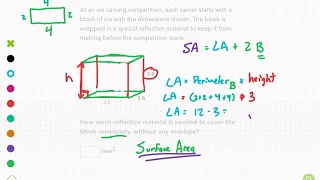 4
2 2
4
At an ice carving competition, each carver starts with a
block of ice with the dimensions shown. The block is
wrapped in a special reflective material to keep it from
melting before the competition starts.
SA = LA + 2B
h
LA = Perimeter B × height
LA = (2+2+4+4) * 3
LA = 12 · 3 =
How much reflective material is needed to cover the
block completely, without any overlaps?
feet²
Surface Area